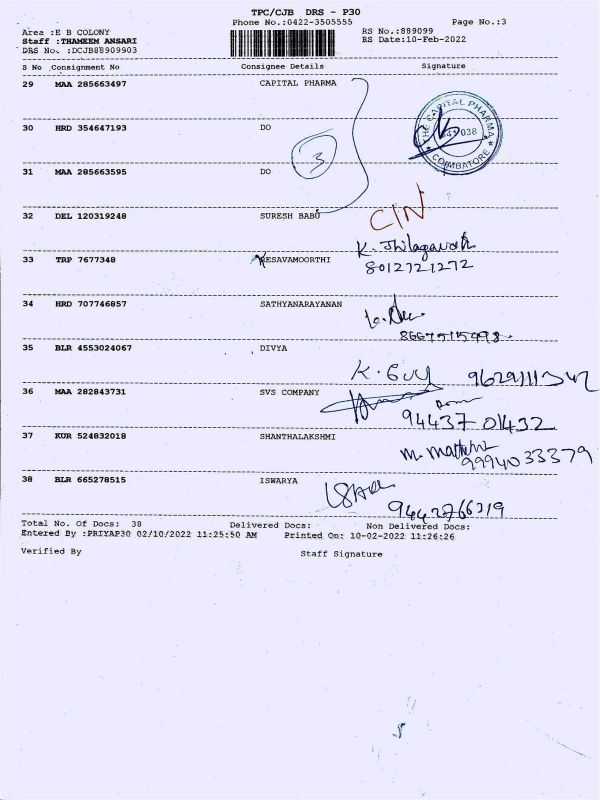 TPC/CJB DRS - P30
Phone No.:0422-3505555 Page No.:3
Area :E B COLONY RS No.:889099
Staff :THAMEEM ANSARI RS Date:10-Feb-2022
DRS No. :DCJB88909903
S No Consignment No Consignee Details Signature
29 MAA 285663497 CAPITAL PHARMA
THE CAPITAL PHARMA
COIMBATORE
30 HRD 354647193 DO
3
31 MAA 285663595 DO
32 DEL 120319248 SURESH BABU
CIN
33 TRP 7677348 KESAVAMOORTHI
K. Thilagavathi
8012721272
34 HRD 707746857 SATHYANARAYANAN
35 BLR 4553024067 DIVYA
36 MAA 282843731 SVS COMPANY
94437 01432
37 KUR 524832018 SHANTHALAKSHMI
9994033379
38 BLR 665278515 ISWARYA
9442766319
Total No. Of Docs: 38 Delivered Docs: Non Delivered Docs:
Entered By :PRIYAP30 02/10/2022 11:25:50 AM Printed On: 10-02-2022 11:26:26
Verified By Staff Signature